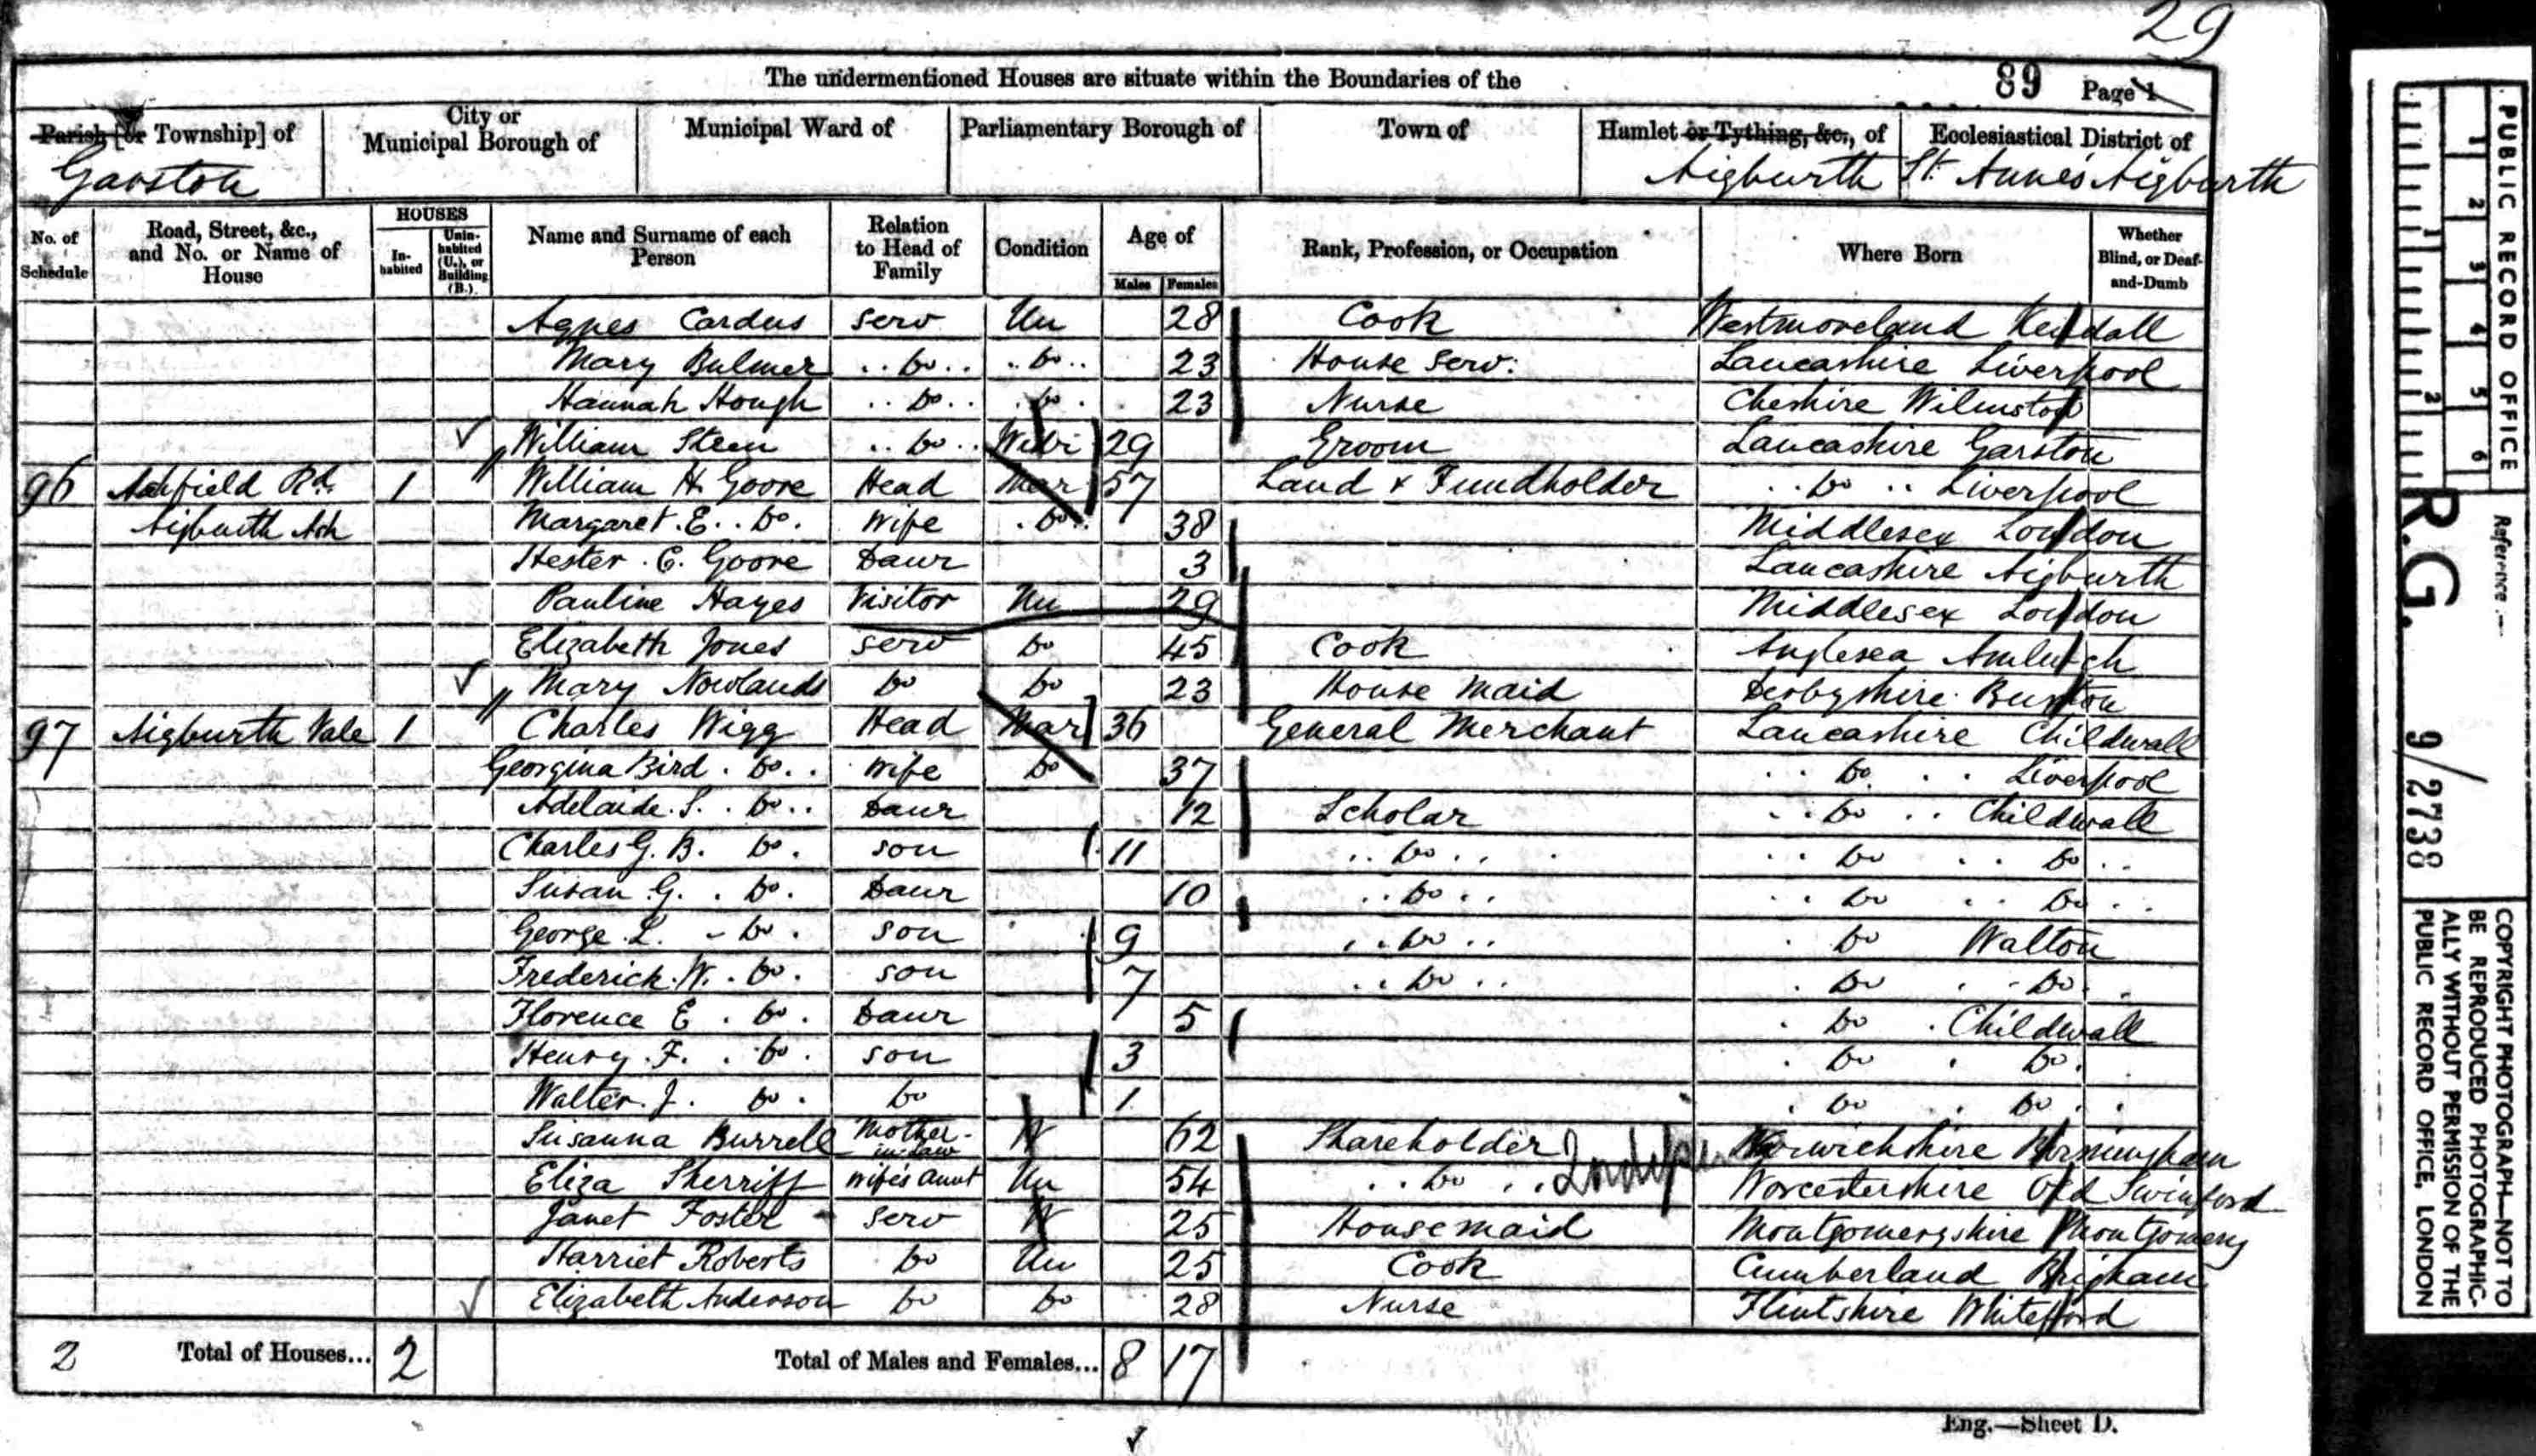 29
The undermentioned Houses are situate within the Boundaries of the
89 Page 1
Parish [or Township] of City or Municipal Borough of Municipal Ward of Parliamentary Borough of Town of Hamlet or Tything, &c., of Ecclesiastical District of
Garston Aigburth St. Anne's Aigburth
No. of Schedule Road, Street, &c., and No. or Name of House HOUSES In-habited Unin-habited (U.), or Building (B.) Name and Surname of each Person Relation to Head of Family Condition Age of Males Females Rank, Profession, or Occupation Where Born Whether Blind, or Deaf-and-Dumb
Agnes Cardus Serv Un 28 Cook Westmoreland Kendall
Mary Bulmer Do Do 23 House Serv: Lancashire Liverpool
Hannah Hough Do Do 23 Nurse Cheshire Wilmslow
William Steen Do 29 Groom Lancashire Garston
96 Ashfield Rd. 1 William H Goore Head Mar 57 Land & Fundholder Do Liverpool
Aigburth Ash Margaret E. Do. Wife Do 38 Middlesex London
Hester E. Goore Daur 3 Lancashire Aigburth
Pauline Hayes Visitor Un 29 Middlesex London
Elizabeth Jones Serv Do 45 Cook Anglesea Amlwch
Mary Nowlands Do Do 23 House Maid Derbyshire Buxton
97 Aigburth Vale 1 Charles Wigg Head Mar 36 General Merchant Lancashire Childwall
Georgina Bird Do Wife Do 37 Do Liverpool
Adelaide S. Do Daur 12 Scholar Do Childwall
Charles G. B. Do. Son 11 Do Do Do
Susan G. Do. Daur 10 Do Do Do
George L. Do. Son 9 Do Do Walton
Frederick W. Do. Son 7 Do Do Do
Florence E. Do. Daur 5 Do Childwall
Henry F. Do. Son 3 Do Do
Walter J. Do. Do 1 Do Do
Susanna Burrell Mother-in-law W 62 Shareholder Warwickshire Birmingham
Eliza Sherriff Wife's Aunt Un 54 Do Worcestershire Old Swinford
Janet Foster Serv W 25 Housemaid Montgomeryshire Montgomery
Harriet Roberts Do Un 25 Cook Cumberland Brigham
Elizabeth Anderson Do Do 28 Nurse Flintshire Whitefford
2 Total of Houses... 2 Total of Males and Females... 8 17
Eng.—Sheet D.
PUBLIC RECORD OFFICE
1 2 3 4 5 6
1 2
Reference :—
R.G. 9/2738
COPYRIGHT PHOTOGRAPH—NOT TO BE REPRODUCED PHOTOGRAPHIC-ALLY WITHOUT PERMISSION OF THE PUBLIC RECORD OFFICE, LONDON